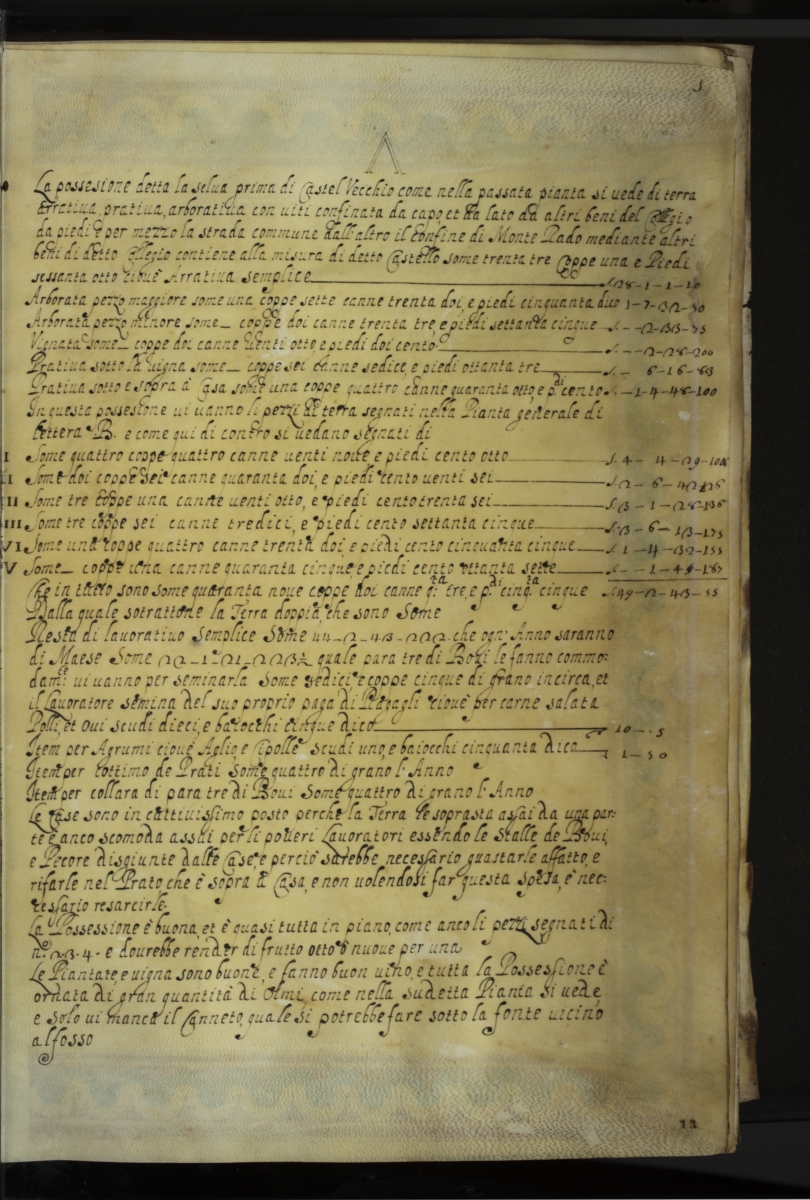 A
La possesione detta la selua prima di Castel Vecchio come nella passata pianta si uede di terra
arratiua, pratiua, arboratiua con uiti confinata da capo, et da lato da altri beni del Collegio
da piedi e per mezzo la strada commune dall'altro il confine di Monte Rado mediante altri
beni di detto Collegio contiene alla misura di detto Castello some trenta tre Coppe una e Piedi
sessanta otto cioue Arratiua semplice
Arborata pezzo maggiore some una coppe sette canne trenta doi, e piedi cinquanta duo 1-7-32-50
Arborata pezzo minore some — coppe doi canne trenta tre, e piedi settanta cinque S. - -2-33-75
Vignata some — coppe doi canne uenti otto, e piedi doi cento S. - -2-28-200
Pratiua sotto la uigna some — coppe sei canne sedice, e piedi ottanta tre S. - 6-16-83
Pratiua sotto e sopra à Casa some una coppe quattro canne quaranta otto, e p.di cento S. -1-4-48-100
In questa possesione ui uanno li pezzi di terra segnati nella Pianta generale di
lettera B. e come qui di contro si uedano segnati di
I Some quattro coppe quattro canne uenti noue, e piedi cento otto S. 4 - 4-29-108
II Some doi coppe sei canne quaranta doi, e piedi cento uenti sei S. 2 - 6-42-126
III Some tre coppe una canne uenti otto, e piedi cento trenta sei S. 3 - 1-28-136
IIII Some tre coppe sei canne tredici, e piedi cento settanta cinque S. 3-6-13-175
VI Some una coppe quattro canne trenta doi, e piedi cento cinquanta cinque S. 1-4-32-155
V Some — coppe una canne quaranta cinque, e piedi cento ottanta sette S. - -1-45-187
Che in tutto sono some quaranta noue coppe doi canne q.ta tre, e p.di cinq.ta cinque S. 49-2-43-55
Dalla quale sotrattone la Terra doppia, che sono Some
Resta di lauoratiuo Semplice Some 44-2-43-222 che ogn' Anno saranno
di Maese Some quale para tre di Boui le fanno commo:
dam.te ui uanno per seminarla Some sedici e coppe cinque di grano incirca, et
il Lauoratore semina del suo proprio paga di Pazagli cioue per carne salata
Polli, et Oui scudi dieci, e baiocchi cinque dico 10 - . 5
Item per Agrumi cioue Aglio, e Cipolle scudi uno, e baiocchi cinquanta dico 1 - 50
Item per cottimo de Prati Some quattro di grano l'Anno
Item per collara di para tre di Boui Some quattro di grano l'Anno
Le Case sono in cattiuissimo posto perche la Terra le soprasta assai da una par:
te è anco scomoda assai per li poueri Lauoratori essendo le Stalle de Boui,
e Pecore disgiunte dalle Case, e perciò sarebbe necessario guastarle affatto, e
rifarle nel Prato che è sopra à Casa, e non uolendosi far questa spesa, è nec:
cessario resarcirle.
La Possessione è buona, et è quasi tutta in piano, come anco li pezzi segnati di
n.o 2.3.4. e dourebbe render di frutto otto ò nuoue per una
Le Piantate, e uigna sono buone, e fanno buon uino, e tutta la Possessione è
ornata di gran quantità di Olmi, come nella sudetta Pianta si uede,
e solo ui manca il Canneto, quale si potrebbe fare sotto la fonte uicino
al fosso
12